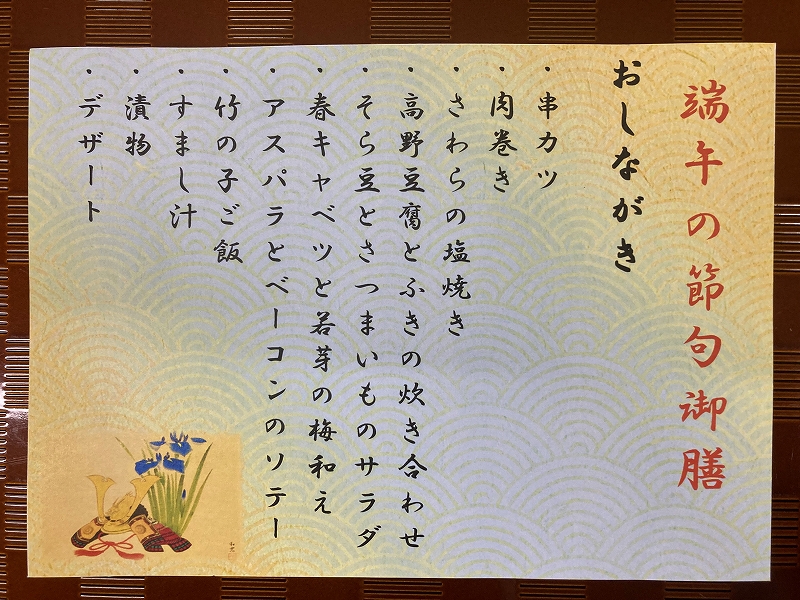 端午の節句御膳
おしながき
・串カツ
・肉巻き
・さわらの塩焼き
・高野豆腐とふきの炊き合わせ
・そら豆とさつまいものサラダ
・春キャベツと若芽の梅和え
・アスパラとベーコンのソテー
・竹の子ご飯
・すまし汁
・漬物
・デザート